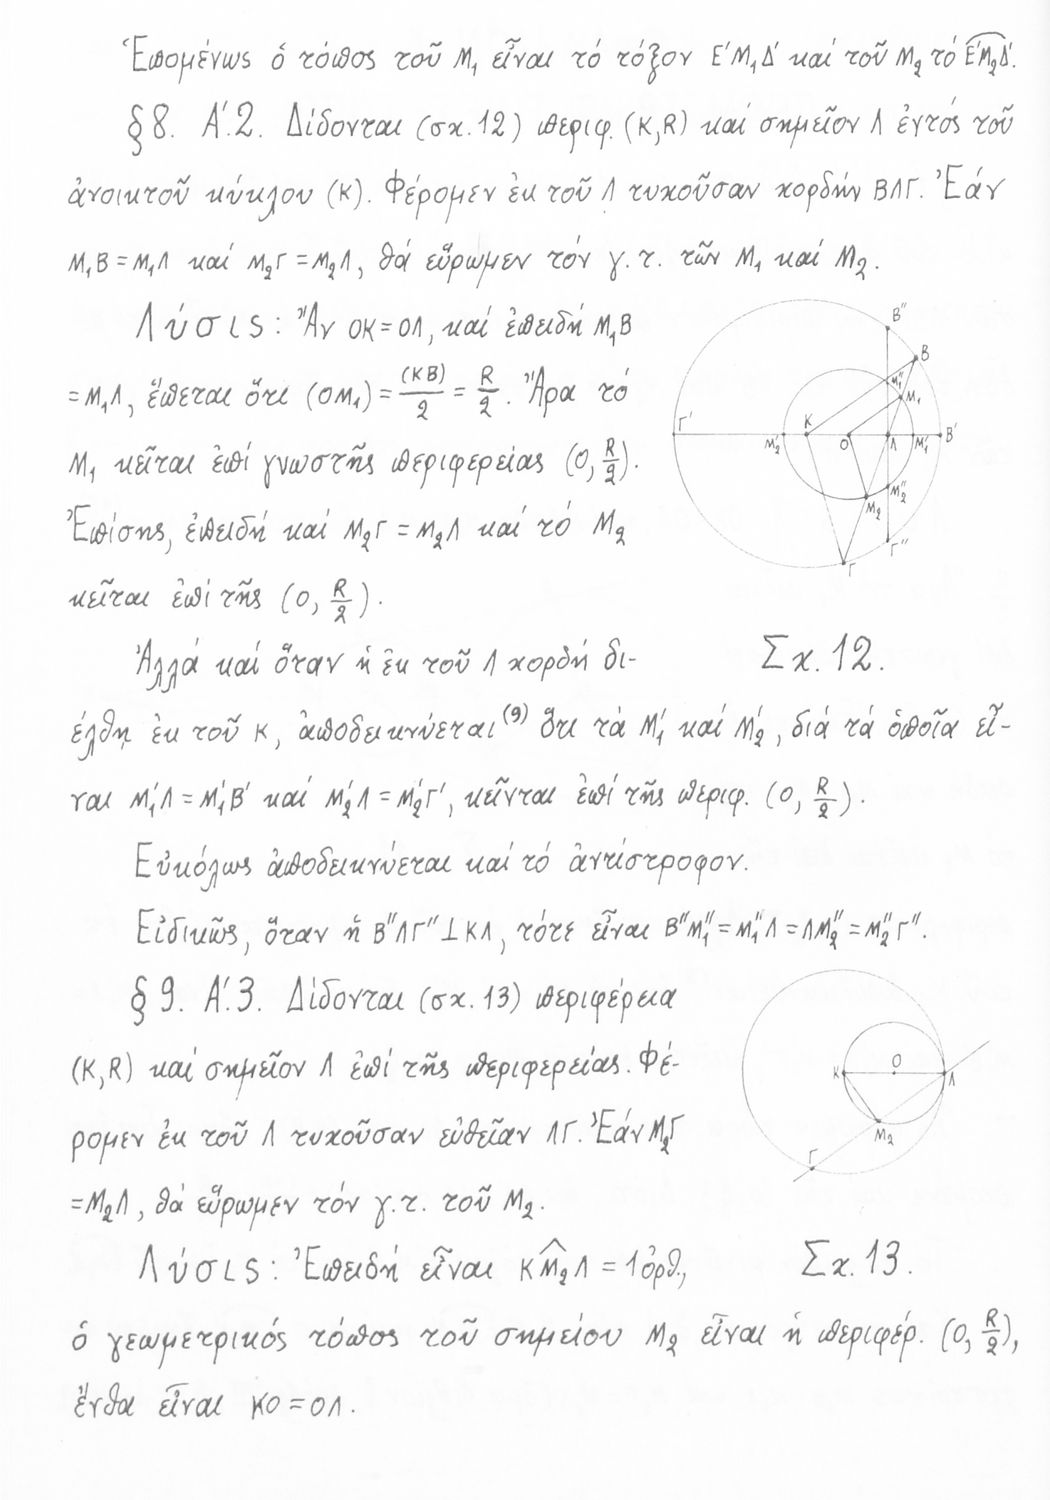 Ἑπομένως ὁ τόπος τοῦ Μ₁ εἶναι τό τόξον Ε΄Μ₁Δ΄ καί τοῦ Μ₂ τό Ε΄Μ₂Δ΄.
§8. Α΄.2. Δίδονται (σχ.12) περιφ. (Κ,R) καί σημεῖον Λ ἐντός τοῦ
ἀνοικτοῦ κύκλου (Κ). Φέρομεν ἐκ τοῦ Λ τυχοῦσαν χορδήν ΒΛΓ. Ἐάν
Μ₁Β = Μ₁Λ καί Μ₂Γ = Μ₂Λ, θά εὕρωμεν τόν γ.τ. τῶν Μ₁ καί Μ₂.
Λύσις: Ἄν ΟΚ=ΟΛ, καί ἐπειδή Μ₁Β
=Μ₁Λ, ἕπεται ὅτι (ΟΜ₁) = (ΚΒ)/2 = R/2. Ἄρα τό
Μ₁ κεῖται ἐπί γνωστῆς περιφερείας (Ο, R/2).
Ἐπίσης, ἐπειδή καί Μ₂Γ = Μ₂Λ καί τό Μ₂
κεῖται ἐπί τῆς (Ο, R/2).
Β΄΄
Β
Μ₁΄΄
Μ₁
Γ΄
Κ
Μ₂΄
Ο
Λ
Μ₁΄
Β΄
Μ₂΄΄
Μ₂
Γ΄΄
Γ
Σχ.12.
Ἀλλά καί ὅταν ἡ ἐκ τοῦ Λ χορδή δι-
έλθῃ ἐκ τοῦ Κ, ἀποδεικνύεται⁽⁹⁾ ὅτι τὰ Μ₁΄ καί Μ₂΄, διά τά ὁποῖα εἶ-
ναι Μ₁΄Λ = Μ₁΄Β΄ καί Μ₂΄Λ = Μ₂΄Γ΄, κεῖνται ἐπί τῆς περιφ. (Ο, R/2).
Εὐκόλως ἀποδεικνύεται καί τό ἀντίστροφον.
Εἰδικῶς, ὅταν ἡ Β΄΄ΛΓ΄΄⊥ΚΛ, τότε εἶναι Β΄΄Μ₁΄΄=Μ₁΄΄Λ=ΛΜ₂΄΄=Μ₂΄΄Γ΄΄.
§9. Α΄.3. Δίδονται (σχ.13) περιφέρεια
(Κ,R) καί σημεῖον Λ ἐπί τῆς περιφερείας. Φέ-
ρομεν ἐκ τοῦ Λ τυχοῦσαν εὐθεῖαν ΛΓ. Ἐάν Μ₂Γ
=Μ₂Λ, θά εὕρωμεν τόν γ.τ. τοῦ Μ₂.
Κ
Ο
Λ
Μ₂
Γ
Σχ.13.
Λύσις: Ἐπειδή εἶναι ΚΜ̂₂Λ = 1ὀρθ.,
ὁ γεωμετρικός τόπος τοῦ σημείου Μ₂ εἶναι ἡ περιφέρ. (Ο, R/2),
ἔνθα εἶναι ΚΟ=ΟΛ.